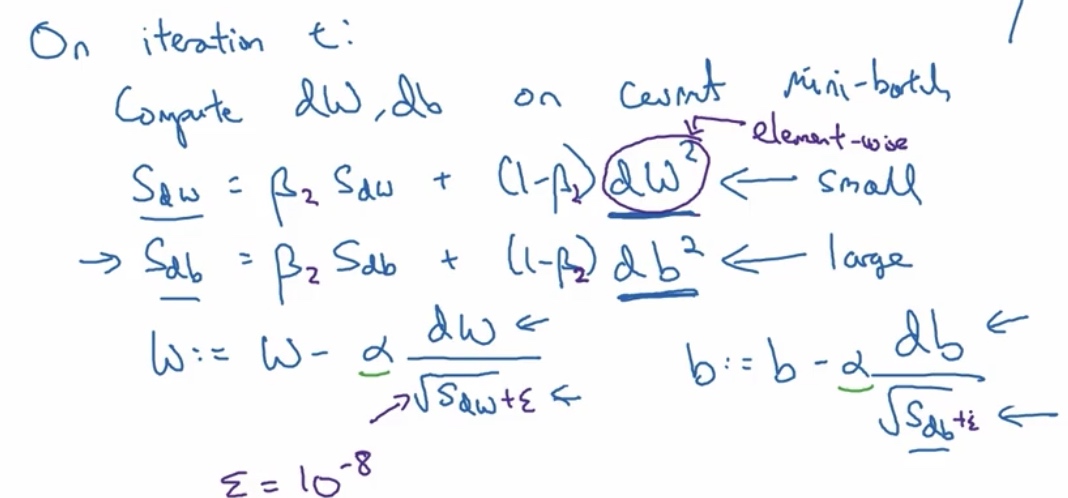 On iteration t:
Compute dW, db on current mini-batch
element-wise
S_dW = β₂ S_dW + (1-β₂) dW² ← small
→ S_db = β₂ S_db + (1-β₂) db² ← large
W := W - α dW / √S_dW + ε ← b := b - α db / √S_db + ε ←
ε = 10⁻⁸